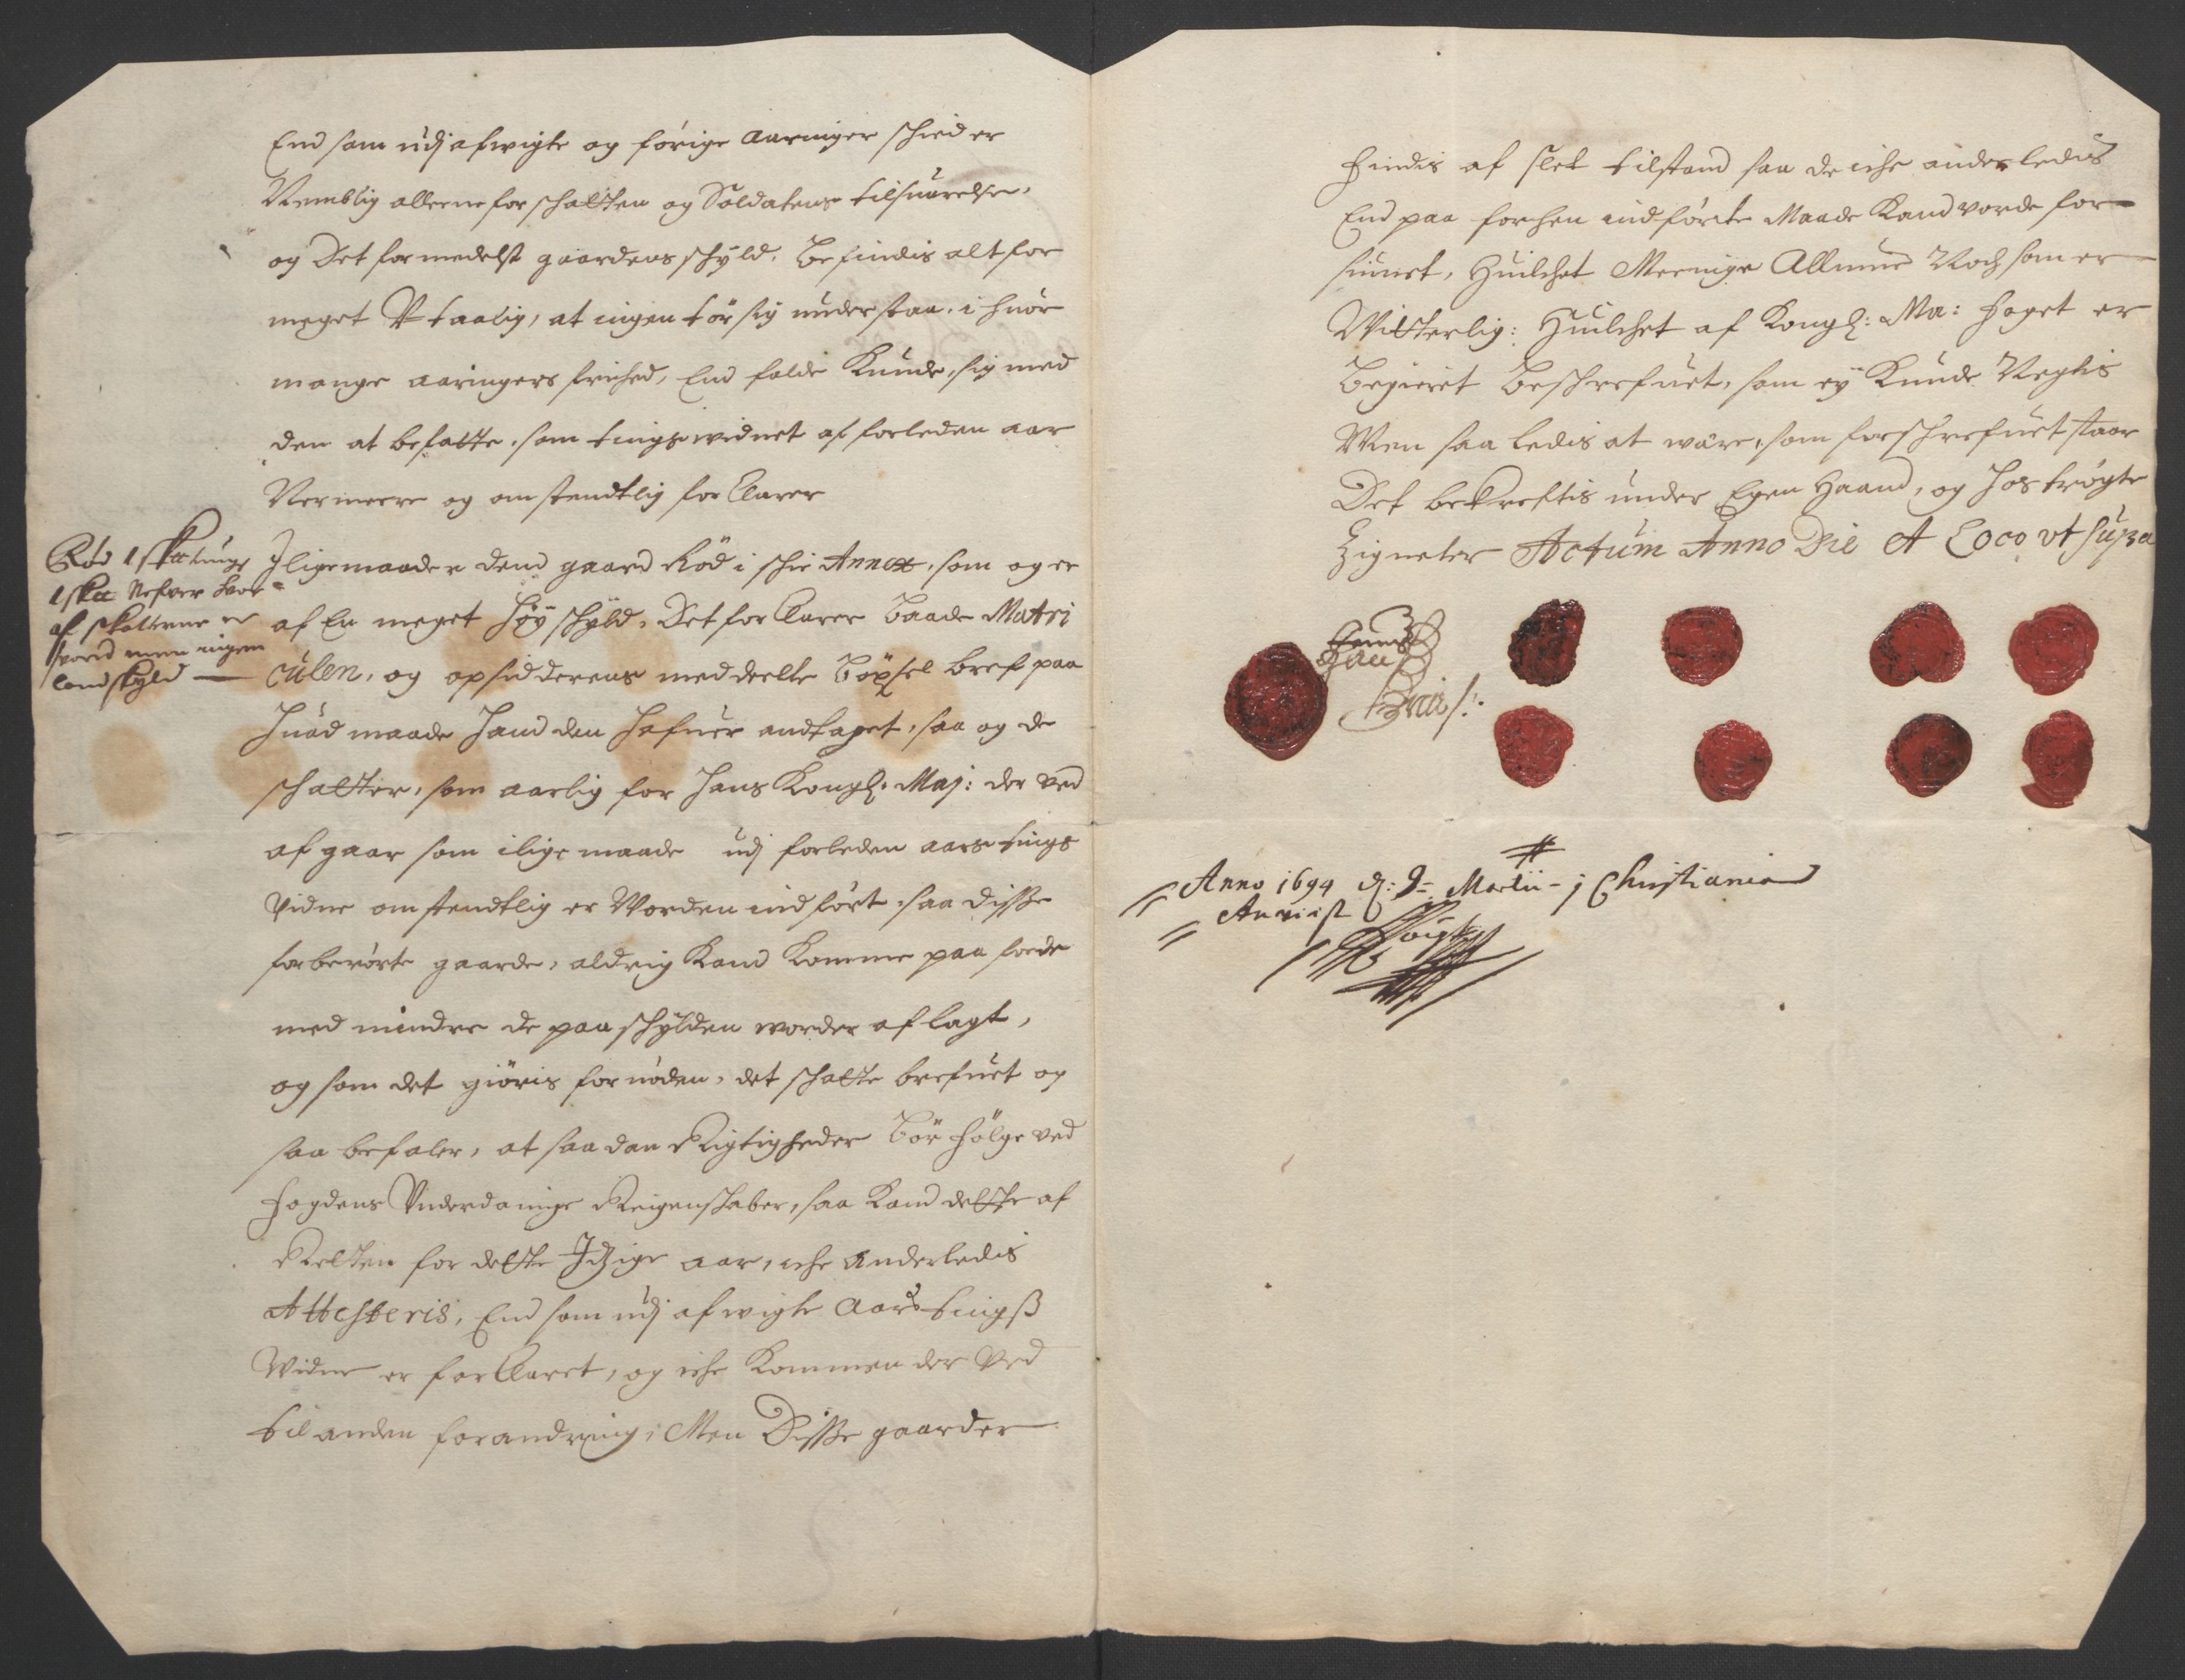 End som udj afwigte og förige aaringer schied er
Nemblig alleene for schatten og Soldatens tilsuarelse,
og Det formedelst gaardens schÿld, befindis alt for
meget Vtaalig, at ingen tör sig understaa, i huor
mange aaringers frihed, End falde Kunde, sig med
den at befatte, som tingswidnet af forleden aar
Vermeere og omstendtlig forklarer
Röd 1 skatungs
1 skll Nefver hvor-
af skatterne er
svared men ingen
landskyld
Jligemaade er dend gaard Röd i schie Annex, som og er
af En meget höÿ schÿld, Det forklarer baade Matri
culen, og opsidderens meddeelte böxsel bref paa
huad maade hand den hafuer andtaget, saa og de
schatter, som aarlig for hans Kongl: Maj: der ved
af gaar som ilige maade udj forleden aars tings
Vidne omstendtlig er Worden indfört, saa disse
forberörte gaarde, aldrig Kand Komme paa fode
med mindre de paa schÿlden worder aflagt,
og som det giöris fornöden, det schatte brefuet og
saa befaler, at saadan Rigtigheder bör fölge ved
fogdens Underdanige Reigenskaber, saa Kand dette af
Retten for dette Jtzige aar, iche anderledis
Attesteris, End som udj afwigte Aars tingß
Widne er forklaret, og iche Kommen der ved
til anden forandring, Men Disse gaarder
findis af slet tilstand saa de iche anderledis
End paa forhen indförte Maade Kand vorde for-
suuret, Huilchet Meenige Allmue Noch som er
Witterlig: Huilchet af Kongl: Ma: foget er
begieret beschrefuet, som eÿ Kunde Negtis
Men saa ledis at wäre, som forschrefuet staar
Det bekreftis under Egen Haand, og hos trögte
Zigneter Actum Anno Die Et Loco ut supra
Anno 1694 d: 9= Martii - j Christiania
Anviist